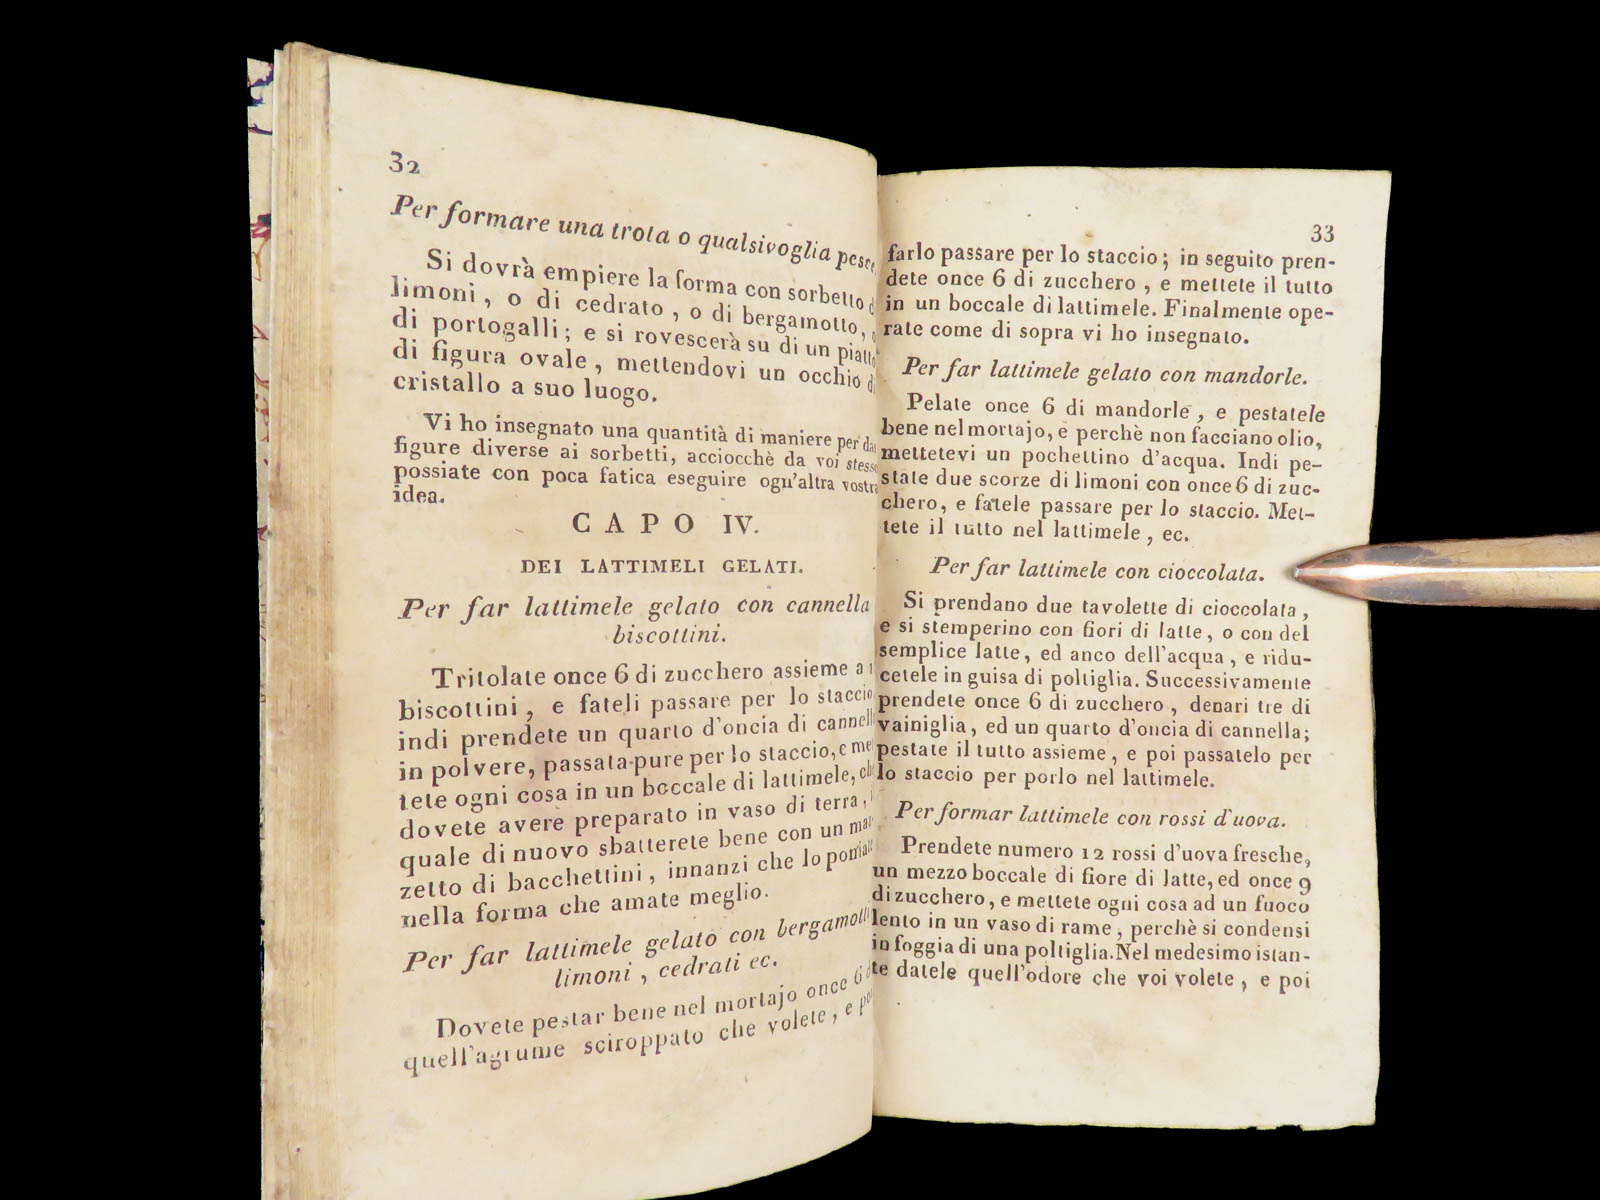 32
Per formare una trota o qualsivoglia pesce.
Si dovrà empiere la forma con sorbetto
limoni, o di cedrato, o di bergamotto,
di portogalli; e si rovescerà su di un piatto
di figura ovale, mettendovi un occhio
cristallo a suo luogo.
Vi ho insegnato una quantità di maniere per
figure diverse ai sorbetti, acciocchè da voi stesso
possiate con poca fatica eseguire ogn'altra vostra
idea.
CAPO IV.
DEI LATTIMELI GELATI.
Per far lattimele gelato con cannella
biscottini.
Tritolate once 6 di zucchero assieme a
biscottini, e fateli passare per lo staccio
indi prendete un quarto d'oncia di
in polvere, passata pure per lo staccio, e
tete ogni cosa in un boccale di lattimele,
dovete avere preparato in vaso di terra,
quale di nuovo sbatterete bene con un
zetto di bacchettini, innanzi che lo
nella forma che amate meglio.
Per far lattimele gelato con
limoni, cedrati ec.
Dovete pestar bene nel mortajo once 6
quell'agrume sciroppato che volete, e
33
farlo passare per lo staccio; in seguito pren-
dete once 6 di zucchero, e mettete il tutto
in un boccale di lattimele. Finalmente ope-
rate come di sopra vi ho insegnato.
Per far lattimele gelato con mandorle.
Pelate once 6 di mandorle, e pestatele
bene nel mortajo, e perchè non facciano olio,
mettetevi un pochettino d'acqua. Indi pe-
state due scorze di limoni con once 6 di zuc-
chero, e fatele passare per lo staccio. Met-
tete il tutto nel lattimele, ec.
Per far lattimele con cioccolata.
Si prendano due tavolette di cioccolata,
e si stemperino con fiori di latte, o con del
semplice latte, ed anco dell'acqua, e ridu-
cetele in guisa di poltiglia. Successivamente
prendete once 6 di zucchero, denari tre di
vainiglia, ed un quarto d'oncia di cannella;
pestate il tutto assieme, e poi passatelo per
lo staccio per porlo nel lattimele.
Per formar lattimele con rossi d'uova.
Prendete numero 12 rossi d'uova fresche,
un mezzo boccale di fiore di latte, ed once 9
di zucchero, e mettete ogni cosa ad un fuoco
lento in un vaso di rame, perchè si condensi
in foggia di una poltiglia. Nel medesimo istan-
te datele quell'odore che voi volete, e poi